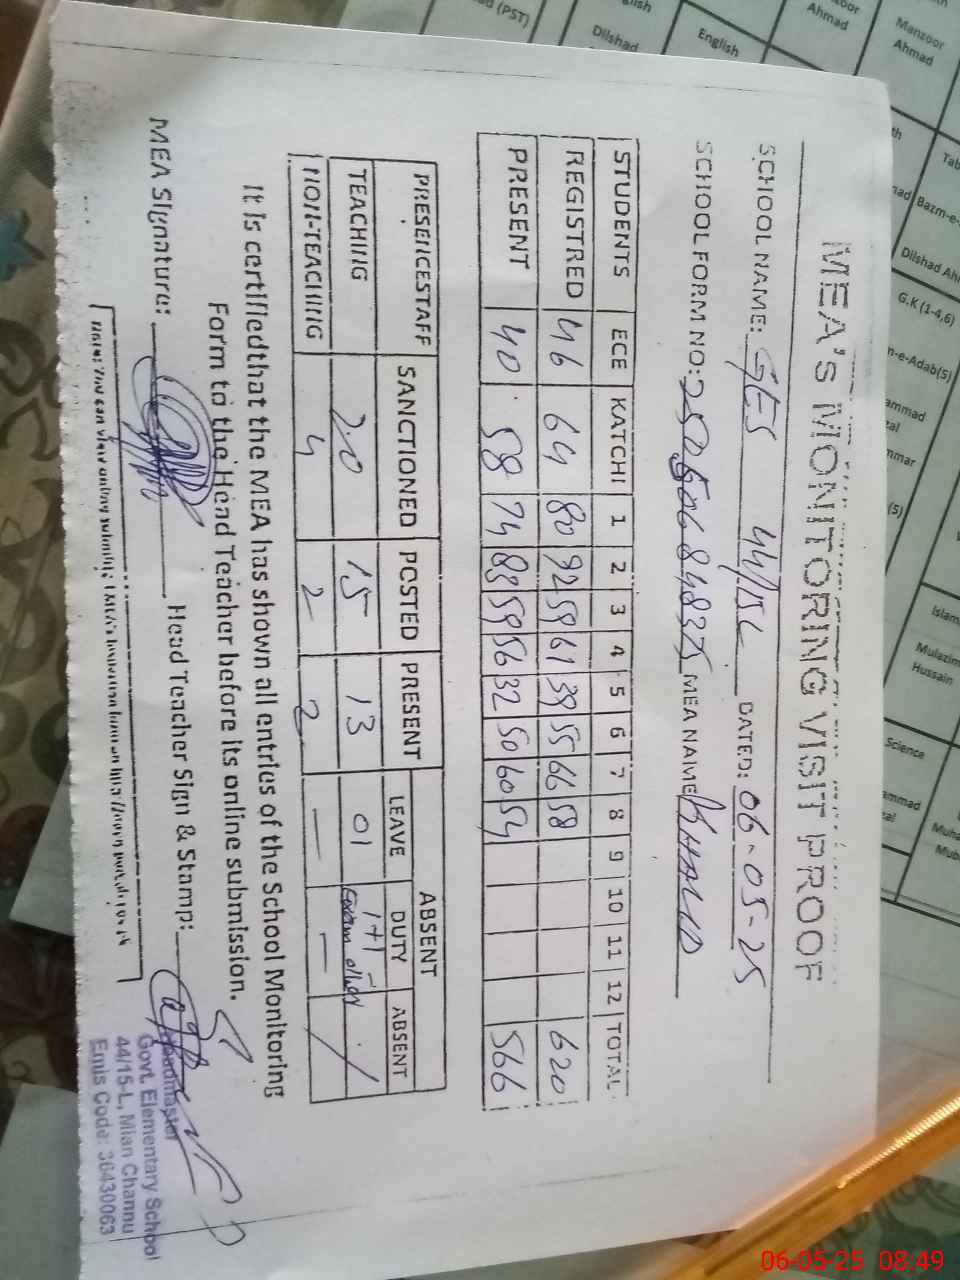 MEA'S MONITORING VISIT PROOF
SCHOOL NAME: GES 44/15L DATED: 06-05-25
SCHOOL FORM NO: MEA NAME KHALID
STUDENTS ECE KATCHI 1 2 3 4 5 6 7 8 9 10 11 12 TOTAL
REGISTRED 46 64 80 92 59 61 39 55 66 58 620
PRESENT 40 58 74 83 59 56 32 50 60 54 566
PRESENCESTAFF SANCTIONED POSTED PRESENT ABSENT
LEAVE DUTY ABSENT
TEACHING 20 15 13 01 1+1 Exam duty /
NON-TEACHING 4 2 2 — — /
It is certifiedthat the MEA has shown all entries of the School Monitoring
Form to the Head Teacher before its online submission.
MEA Signature: Head Teacher Sign & Stamp:
Headmaster
Govt. Elementary School
44/15-L, Mian Channu
Emis Code: 36430063
(PST)
Dilshad
English
Ahmad
Manzoor
Ahmad
Bazm-e-
Dilshad
G.K (1-4,6)
Mulazim
Hussain
Science
06-05-25 08:49